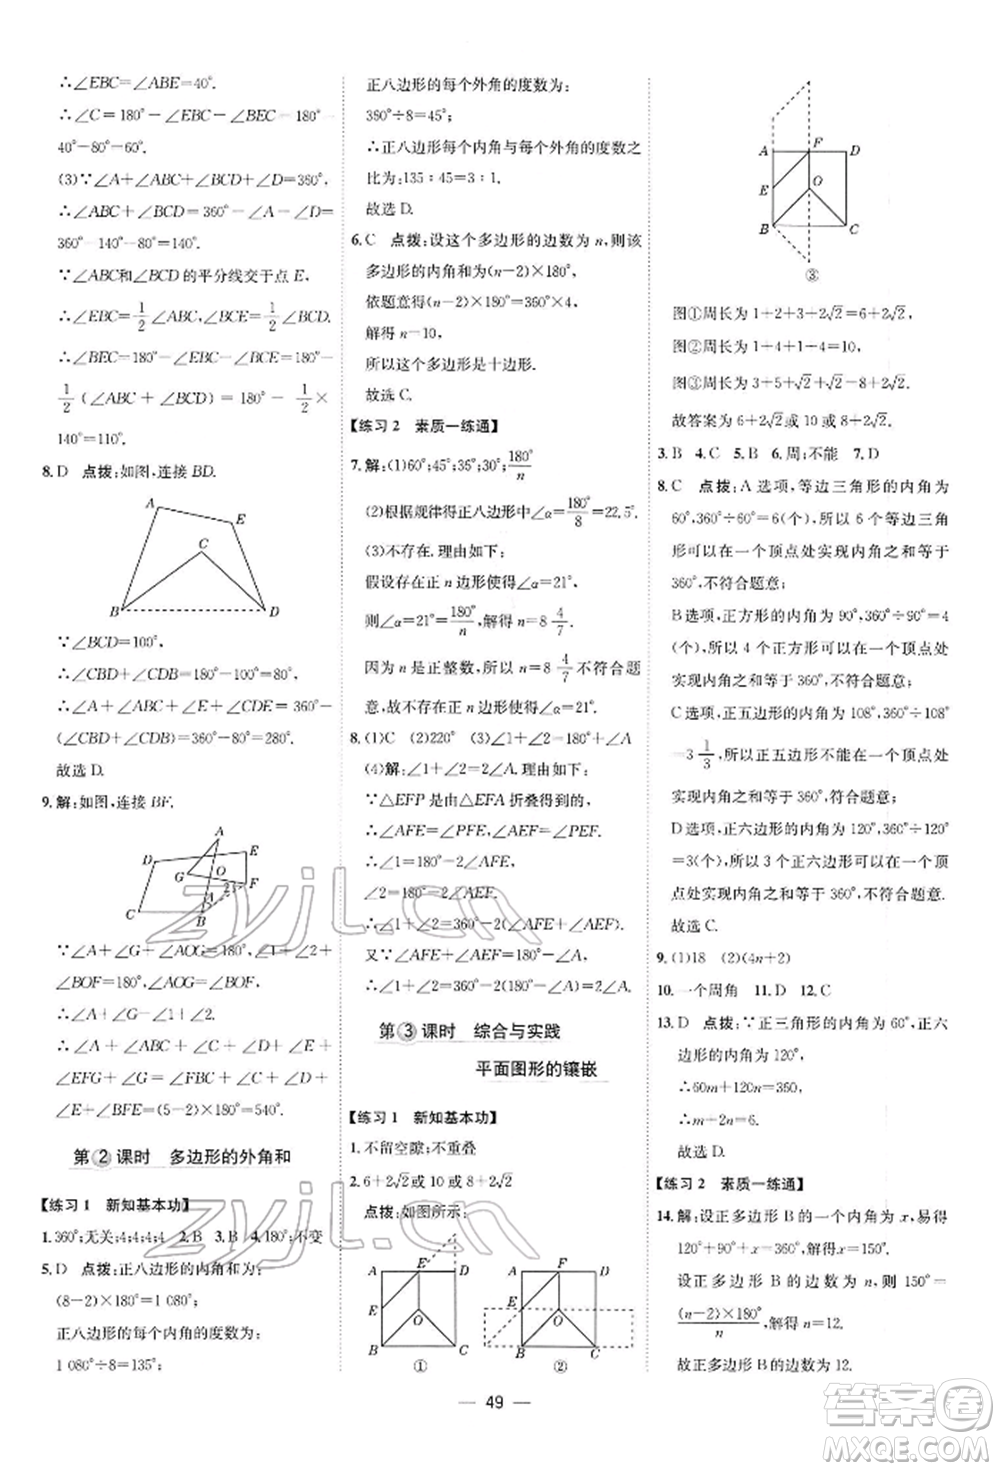 ∴∠EBC=∠ABE=40°.
∴∠C=180°-∠EBC-∠BEC=180°-
40°-80°=60°.
(3)∵∠A+∠ABC+∠BCD+∠D=360°,
∴∠ABC+∠BCD=360°-∠A-∠D=
360°-140°-80°=140°.
∵∠ABC和∠BCD的平分线交于点E,
∴∠EBC=1/2∠ABC,∠BCE=1/2∠BCD.
∴∠BEC=180°-∠EBC-∠BCE=180°-
1/2(∠ABC+∠BCD)=180°-1/2×
140°=110°.
8.D 点拨:如图,连接BD.
A
E
C
B
D
∵∠BCD=100°,
∴∠CBD+∠CDB=180°-100°=80°.
∴∠A+∠ABC+∠E+∠CDE=360°-
(∠CBD+∠CDB)=360°-80°=280°.
故选D.
9.解:如图,连接BF.
A
D
E
G
O
F
2
1
C
B
∵∠A+∠G+∠AOG=180°,∠1+∠2+
∠BOF=180°,∠AOG=∠BOF,
∴∠A+∠G=∠1+∠2.
∴∠A+∠ABC+∠C+∠D+∠E+
∠EFG+∠G=∠FBC+∠C+∠D+
∠E+∠BFE=(5-2)×180°=540°.
第②课时 多边形的外角和
【练习1 新知基本功】
1.360°;无关;4;4;4 2.B 3.B 4.180°;不变
5.D 点拨:正八边形的内角和为:
(8-2)×180°=1 080°;
正八边形的每个内角的度数为:
1 080°÷8=135°;
正八边形的每个外角的度数为:
360°÷8=45°;
∴正八边形每个内角与每个外角的度数之
比为:135∶45=3∶1.
故选D.
6.C 点拨:设这个多边形的边数为n,则该
多边形的内角和为(n-2)×180°,
依题意得(n-2)×180°=360°×4,
解得n=10,
所以这个多边形是十边形.
故选C.
【练习2 素质一练通】
7.解:(1)60°;45°;35°;30°;180°/n
(2)根据规律得正八边形中∠α=180°/8=22.5°.
(3)不存在.理由如下:
假设存在正n边形使得∠α=21°,
则∠α=21°=180°/n,解得n=8 4/7.
因为n是正整数,所以n=8 4/7不符合题
意,故不存在正n边形使得∠α=21°.
8.(1)C (2)220° (3)∠1+∠2=180°+∠A
(4)解:∠1+∠2=2∠A.理由如下:
∵△EFP是由△EFA折叠得到的,
∴∠AFE=∠PFE,∠AEF=∠PEF.
∴∠1=180°-2∠AFE,
∠2=180°-2∠AEF.
∴∠1+∠2=360°-2(∠AFE+∠AEF).
又∵∠AFE+∠AEF=180°-∠A,
∴∠1+∠2=360°-2(180°-∠A)=2∠A.
第③课时 综合与实践
平面图形的镶嵌
【练习1 新知基本功】
1.不留空隙;不重叠
2.6+2√2或10或8+2√2
点拨:如图所示:
A
F
D
E
O
B
C
①
A
F
D
E
O
B
C
②
A
F
D
E
O
B
C
③
图①周长为1+2+3+2√2=6+2√2,
图②周长为1+4+1+4=10,
图③周长为3+5+√2+√2=8+2√2.
故答案为6+2√2或10或8+2√2.
3.B 4.C 5.B 6.周;不能 7.D
8.C 点拨:A选项,等边三角形的内角为
60°,360°÷60°=6(个),所以6个等边三角
形可以在一个顶点处实现内角之和等于
360°,不符合题意;
B选项,正方形的内角为90°,360°÷90°=4
(个),所以4个正方形可以在一个顶点处
实现内角之和等于360°,不符合题意;
C选项,正五边形的内角为108°,360°÷108°
=3 1/3,所以正五边形不能在一个顶点处
实现内角之和等于360°,符合题意;
D选项,正六边形的内角为120°,360°÷120°
=3(个),所以3个正六边形可以在一个顶
点处实现内角之和等于360°,不符合题意.
故选C.
9.(1)18 (2)(4n+2)
10.一个周角 11.D 12.C
13.D 点拨:∵正三角形的内角为60°,正六
边形的内角为120°,
∴60m+120n=360,
∴m+2n=6.
故选D.
【练习2 素质一练通】
14.解:设正多边形B的一个内角为x,易得
120°+90°+x=360°,解得x=150°.
设正多边形B的边数为n,则150°=
(n-2)×180°/n,解得n=12.
故正多边形B的边数为12.
— 49 —
zyjl.cn
zyjl.cn
答案圈
MXQE.COM